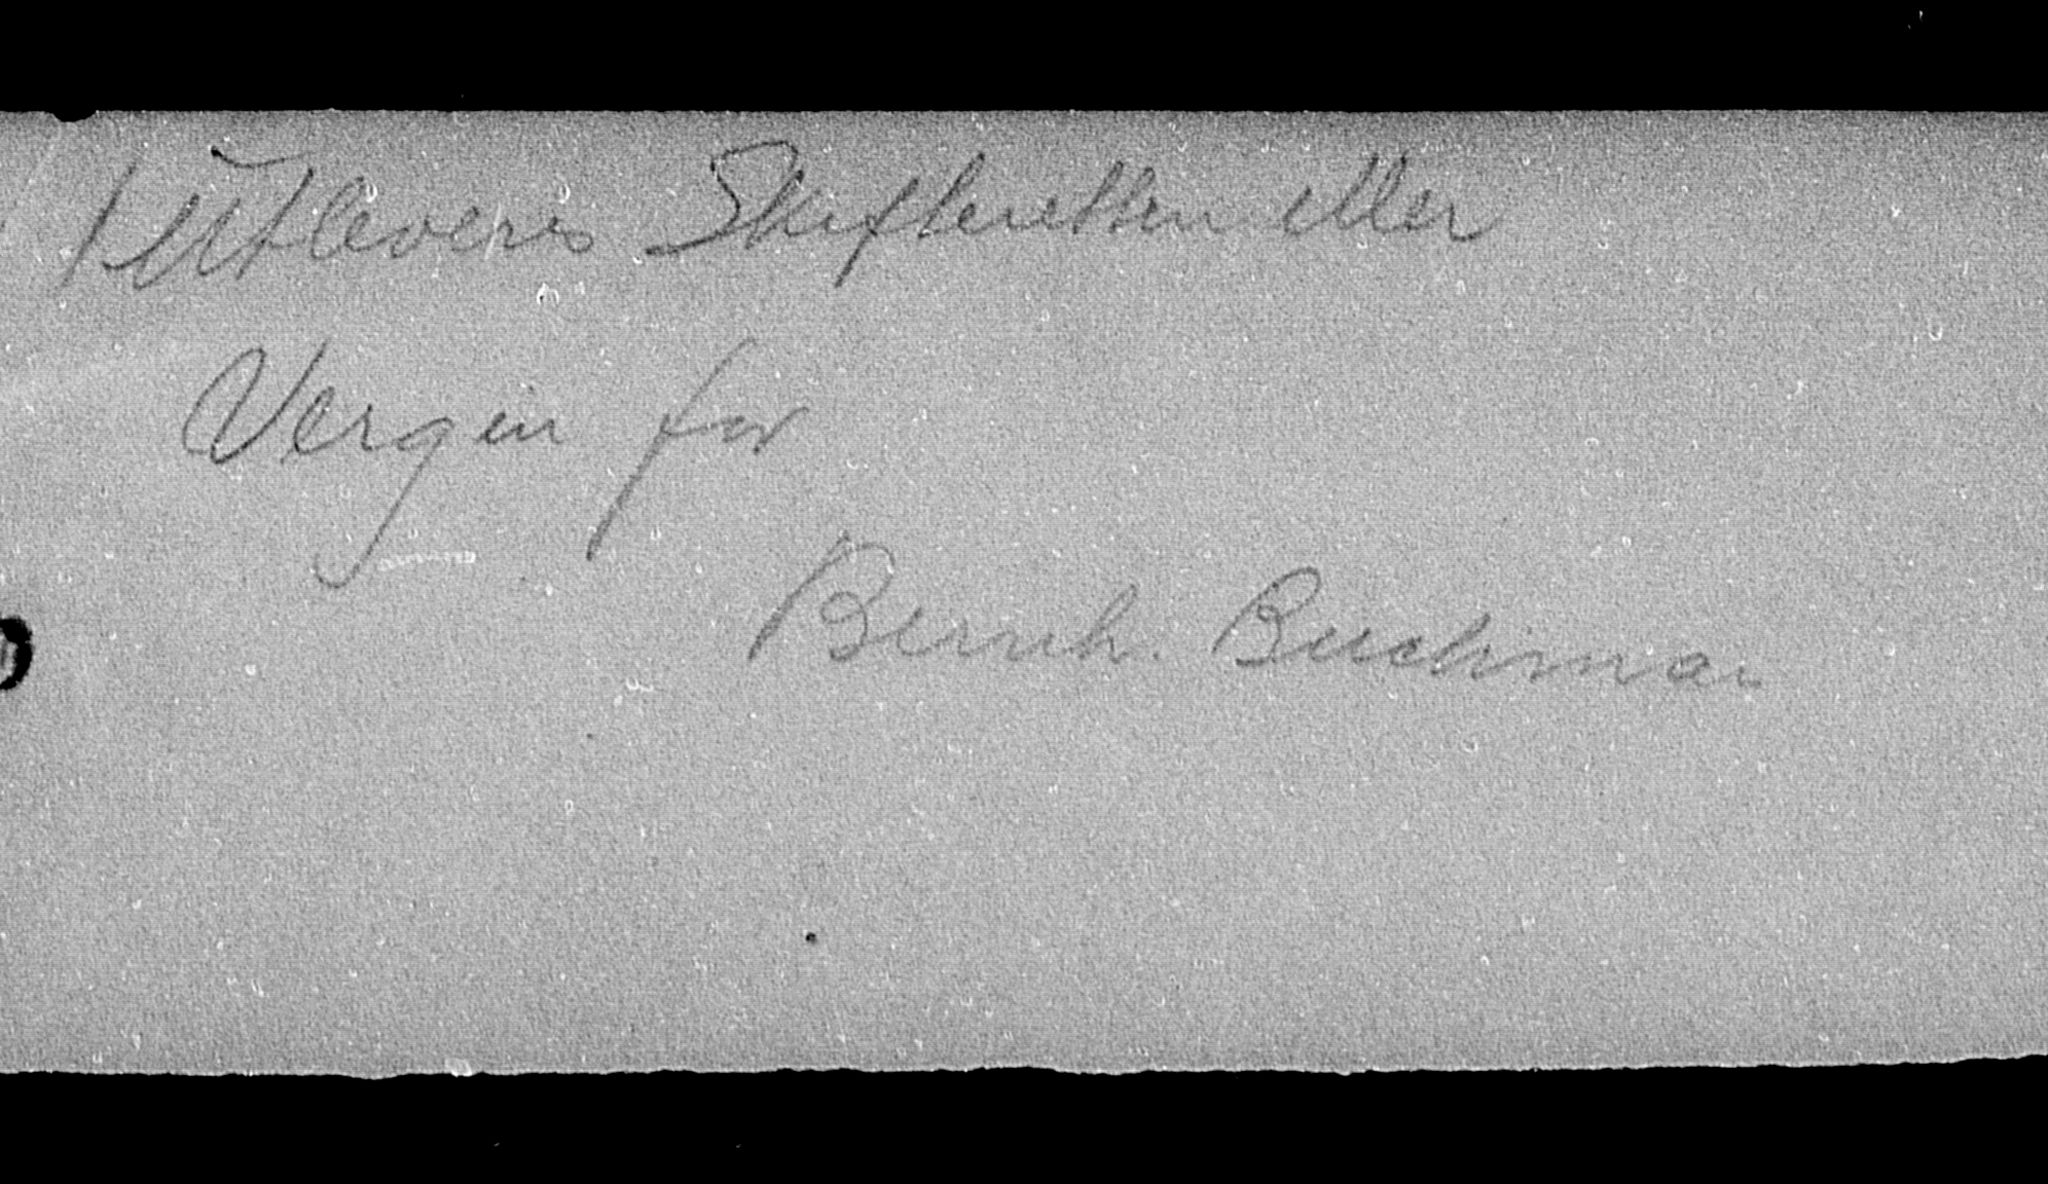 Utleveres Skifteretten eller
Vergen for
Bernh. Buchman